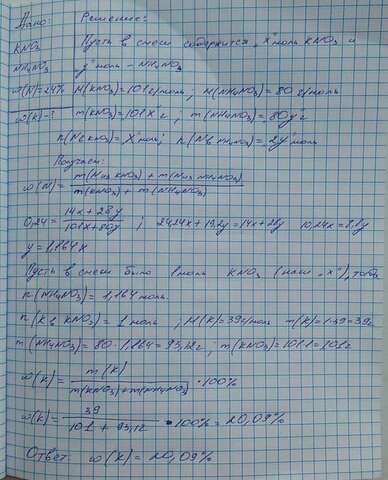 Дано:
Решение:
KNO₃
NH₄NO₃
ω(N)=24%
ω(K)-?
Пусть в смеси содержится "x" моль KNO₃ и
"y" моль - NH₄NO₃
M(KNO₃) = 101 г/моль, M(NH₄NO₃) = 80 г/моль
m(KNO₃)=101x г; m(NH₄NO₃)=80y г
n(N в KNO₃)= x моль; n(N в NH₄NO₃)= 2y моль
Получаем:
ω(N)= m(N из KNO₃) + m(N из NH₄NO₃) / m(KNO₃) + m(NH₄NO₃)
0,24= 14x+28y / 101x+80y ; 24,24x+19,2y=14x+28y 10,24x=8,8y
y=1,164x
Пусть в смеси было 1 моль KNO₃ (наш "x"), тогда
n(NH₄NO₃)= 1,164 моль.
n(K в KNO₃)= 1 моль , M(K)=39 г/моль m(K)=1·39=39г
m(NH₄NO₃)= 80·1,164=93,12г , m(KNO₃)=101·1=101г
ω(K)= m(K) / m(KNO₃)+m(NH₄NO₃) ·100%
ω(K)= 39 / 101+93,12 ·100%=20,09%
Ответ ω(K)=20,09%